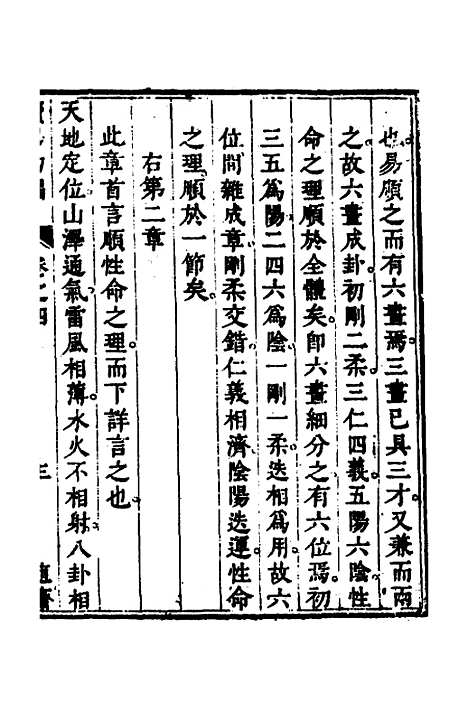 也易順之而有六畫焉三畫已具三才又兼而兩
之故六畫成卦初剛二柔三仁四義五陽六陰性
命之理順於全體矣即六畫細分之有六位焉初
三五爲陽二四六爲陰一剛一柔迭相爲用故六
位間雜成章剛柔交錯仁義相濟陰陽迭運性命
之理順於一節矣
右第二章
此章首言順性命之理而下詳言之也
天地定位山澤通氣雷風相薄水火不相射八卦相
卷之四
三